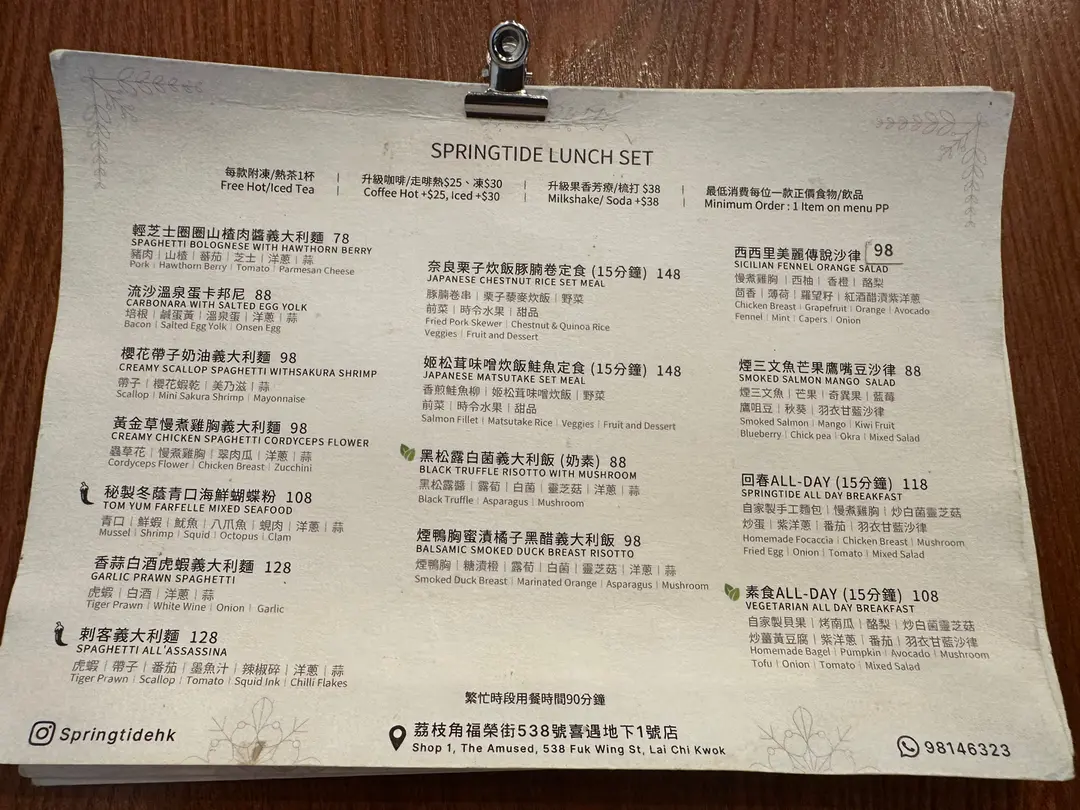 SPRINGTIDE LUNCH SET
每款附凍/熱茶1杯
Free Hot/Iced Tea
升級咖啡/走啡熱$25、凍$30
Coffee Hot +$25, Iced +$30
升級果香芳療/梳打 $38
Milkshake/ Soda +$38
最低消費每位一款正價食物/飲品
Minimum Order : 1 Item on menu PP
輕芝士圈圈山楂肉醬義大利麵 78
SPAGHETTI BOLOGNESE WITH HAWTHORN BERRY
豬肉 | 山楂 | 蕃茄 | 芝士 | 洋蔥 | 蒜
Pork | Hawthorn Berry | Tomato | Parmesan Cheese
流沙溫泉蛋卡邦尼 88
CARBONARA WITH SALTED EGG YOLK
培根 | 鹹蛋黃 | 溫泉蛋 | 洋蔥 | 蒜
Bacon | Salted Egg Yolk | Onsen Egg
櫻花帶子奶油義大利麵 98
CREAMY SCALLOP SPAGHETTI WITHSAKURA SHRIMP
帶子 | 櫻花蝦乾 | 美乃滋 | 蒜
Scallop | Mini Sakura Shrimp | Mayonnaise
黃金草慢煮雞胸義大利麵 98
CREAMY CHICKEN SPAGHETTI CORDYCEPS FLOWER
蟲草花 | 慢煮雞胸 | 翠肉瓜 | 洋蔥 | 蒜
Cordyceps Flower | Chicken Breast | Zucchini
秘製冬蔭青口海鮮蝴蝶粉 108
TOM YUM FARFELLE MIXED SEAFOOD
青口 | 鮮蝦 | 魷魚 | 八爪魚 | 蜆肉 | 洋蔥 | 蒜
Mussel | Shrimp | Squid | Octopus | Clam
香蒜白酒虎蝦義大利麵 128
GARLIC PRAWN SPAGHETTI
虎蝦 | 白酒 | 洋蔥 | 蒜
Tiger Prawn | White Wine | Onion | Garlic
刺客義大利麵 128
SPAGHETTI ALL'ASSASSINA
虎蝦 | 帶子 | 番茄 | 墨魚汁 | 辣椒碎 | 洋蔥 | 蒜
Tiger Prawn | Scallop | Tomato | Squid Ink | Chilli Flakes
奈良栗子炊飯豚腩卷定食 (15分鐘) 148
JAPANESE CHESTNUT RICE SET MEAL
豚腩卷串 | 栗子藜麥炊飯 | 野菜
前菜 | 時令水果 | 甜品
Fried Pork Skewer | Chestnut & Quinoa Rice
Veggies | Fruit and Dessert
姬松茸味噌炊飯鮭魚定食 (15分鐘) 148
JAPANESE MATSUTAKE SET MEAL
香煎鮭魚柳 | 姬松茸味噌炊飯 | 野菜
前菜 | 時令水果 | 甜品
Salmon Fillet | Matsutake Rice | Veggies | Fruit and Dessert
黑松露白菌義大利飯 (奶素) 88
BLACK TRUFFLE RISOTTO WITH MUSHROOM
黑松露醬 | 露荀 | 白菌 | 靈芝菇 | 洋蔥 | 蒜
Black Truffle | Asparagus | Mushroom
煙鴨胸蜜漬橘子黑醋義大利飯 98
BALSAMIC SMOKED DUCK BREAST RISOTTO
煙鴨胸 | 糖漬橙 | 露荀 | 白菌 | 靈芝菇 | 洋蔥 | 蒜
Smoked Duck Breast | Marinated Orange | Asparagus | Mushroom
西西里美麗傳說沙律 98
SICILIAN FENNEL ORANGE SALAD
慢煮雞胸 | 西柚 | 香橙 | 酪梨
茴香 | 薄荷 | 羅望籽 | 紅酒醋漬紫洋蔥
Chicken Breast | Grapefruit | Orange | Avocado
Fennel | Mint | Capers | Onion
煙三文魚芒果鷹嘴豆沙律 88
SMOKED SALMON MANGO SALAD
煙三文魚 | 芒果 | 奇異果 | 藍莓
鷹咀豆 | 秋葵 | 羽衣甘藍沙律
Smoked Salmon | Mango | Kiwi Fruit
Blueberry | Chick pea | Okra | Mixed Salad
回春ALL-DAY (15分鐘) 118
SPRINGTIDE ALL DAY BREAKFAST
自家製手工麵包 | 慢煮雞胸 | 炒白菌靈芝菇
炒蛋 | 紫洋蔥 | 番茄 | 羽衣甘藍沙律
Homemade Focaccia | Chicken Breast | Mushroom
Fried Egg | Onion | Tomato | Mixed Salad
素食ALL-DAY (15分鐘) 108
VEGETARIAN ALL DAY BREAKFAST
自家製貝果 | 烤南瓜 | 酪梨 | 炒白菌靈芝菇
炒薑黃豆腐 | 紫洋蔥 | 番茄 | 羽衣甘藍沙律
Homemade Bagel | Pumpkin | Avocado | Mushroom
Tofu | Onion | Tomato | Mixed Salad
繁忙時段用餐時間90分鐘
Springtidehk
荔枝角福榮街538號喜遇地下1號店
Shop 1, The Amused, 538 Fuk Wing St, Lai Chi Kwok
98146323